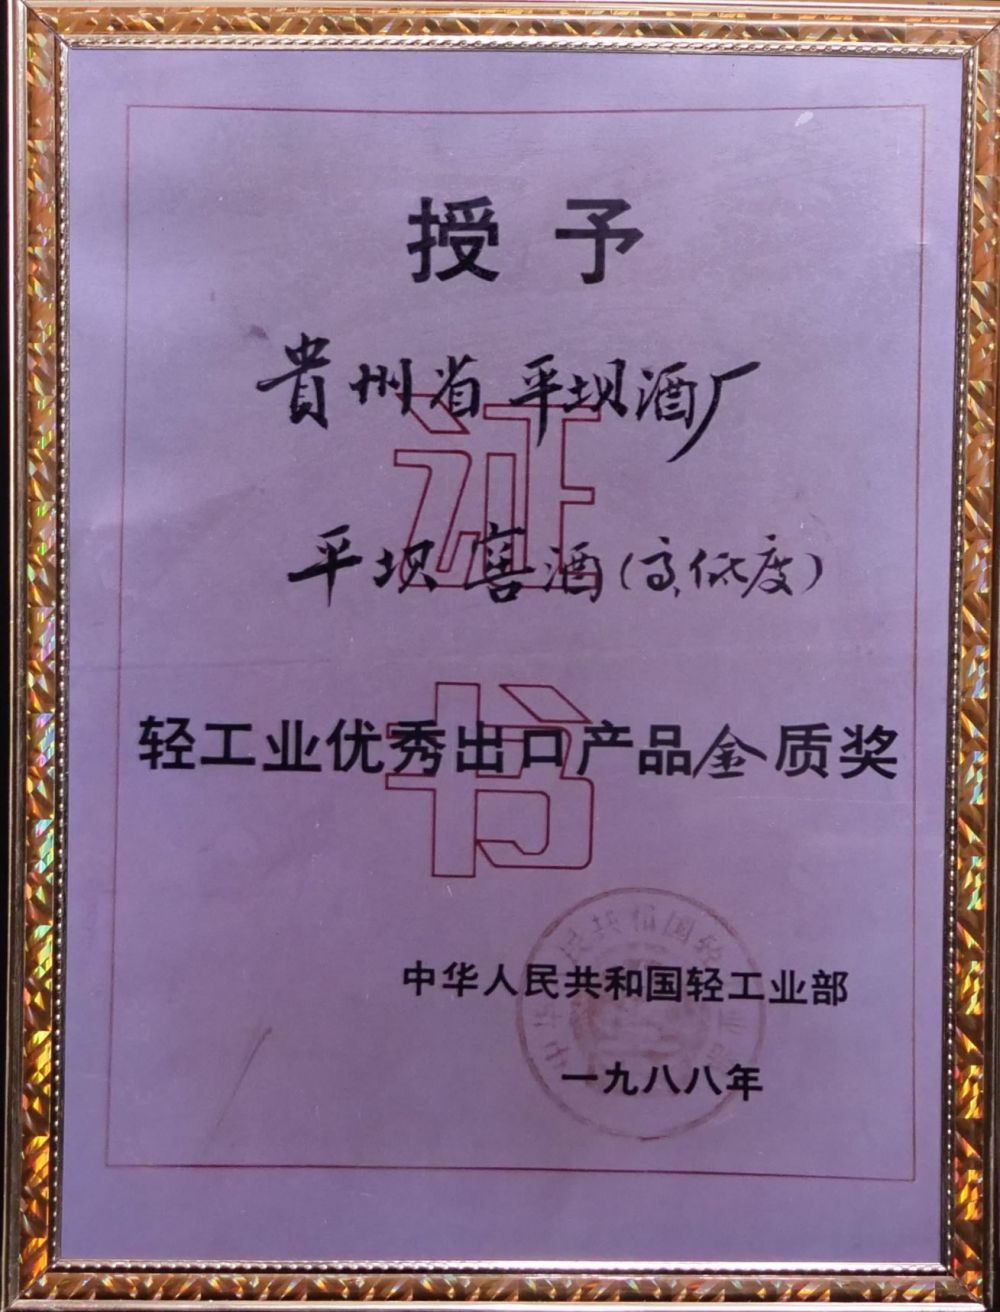 授予
貴州省平坝酒厂
平坝窖酒(高、低度)
证书
轻工业优秀出口产品金质奖
中华人民共和国轻工业部
一九八八年
中华人民共和国轻工业部